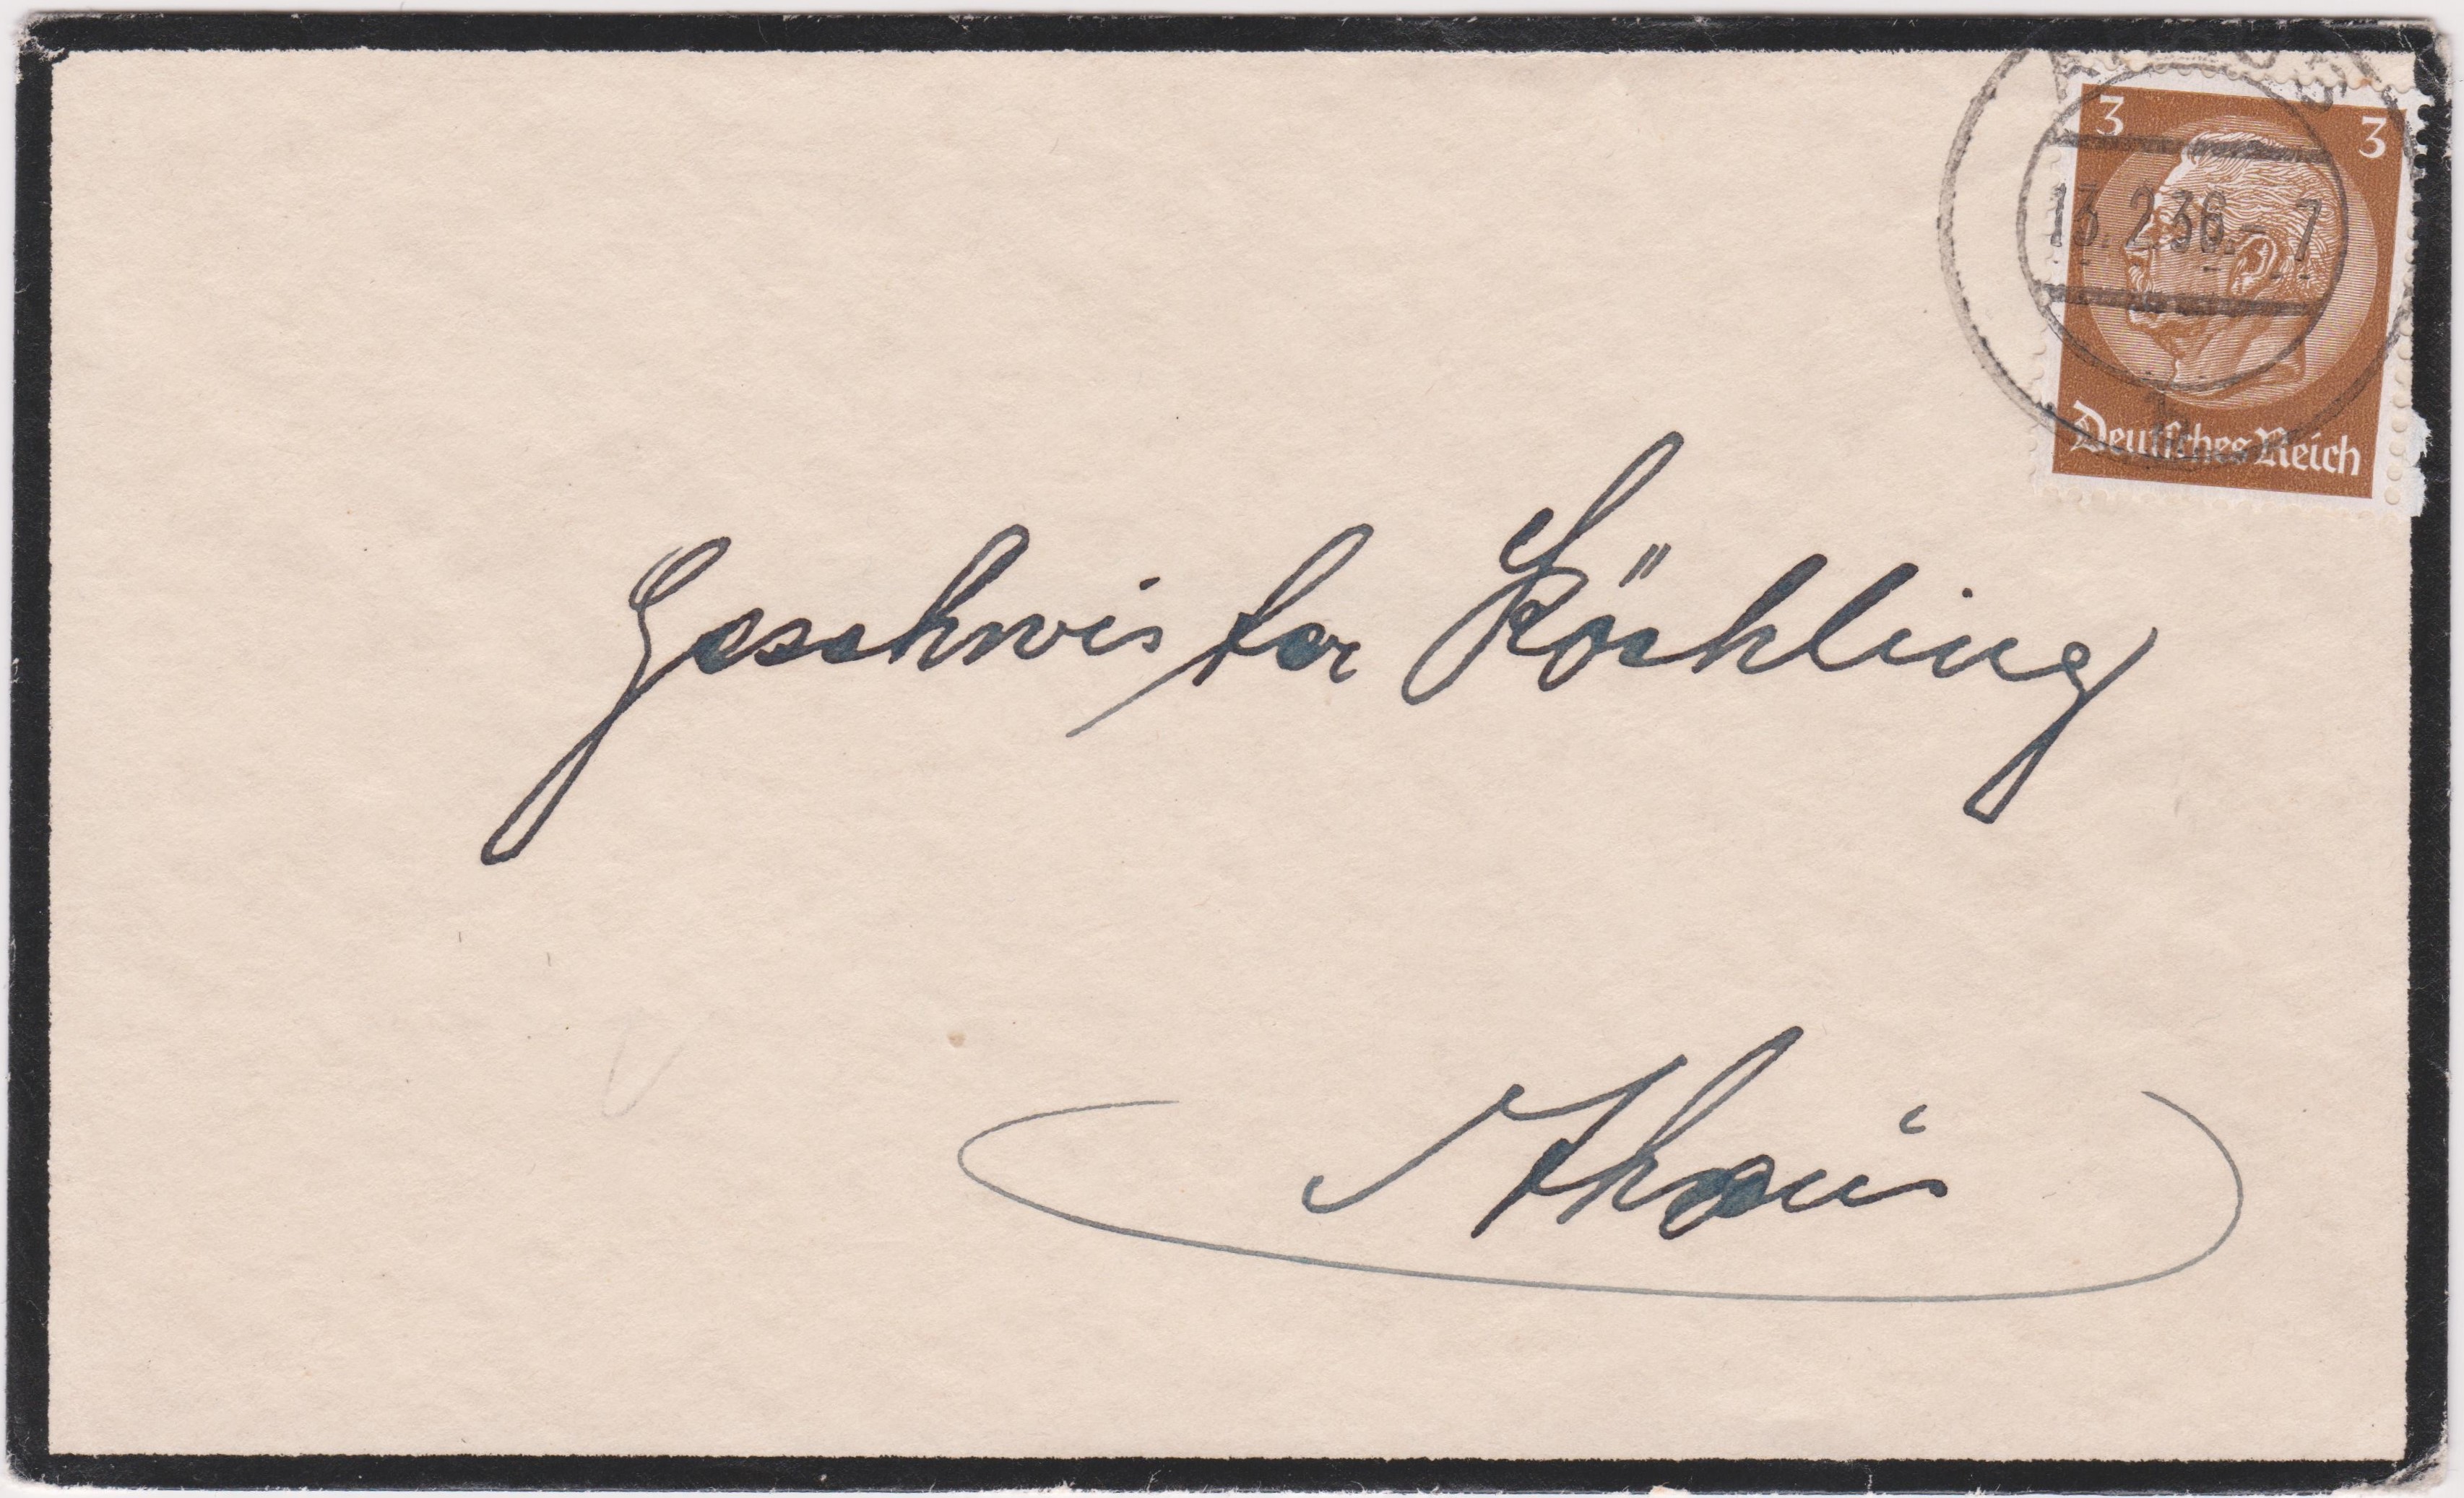 3 3
13. 2.36.- 7
Deutsches Reich
Geschwister Röchling
Ahaus